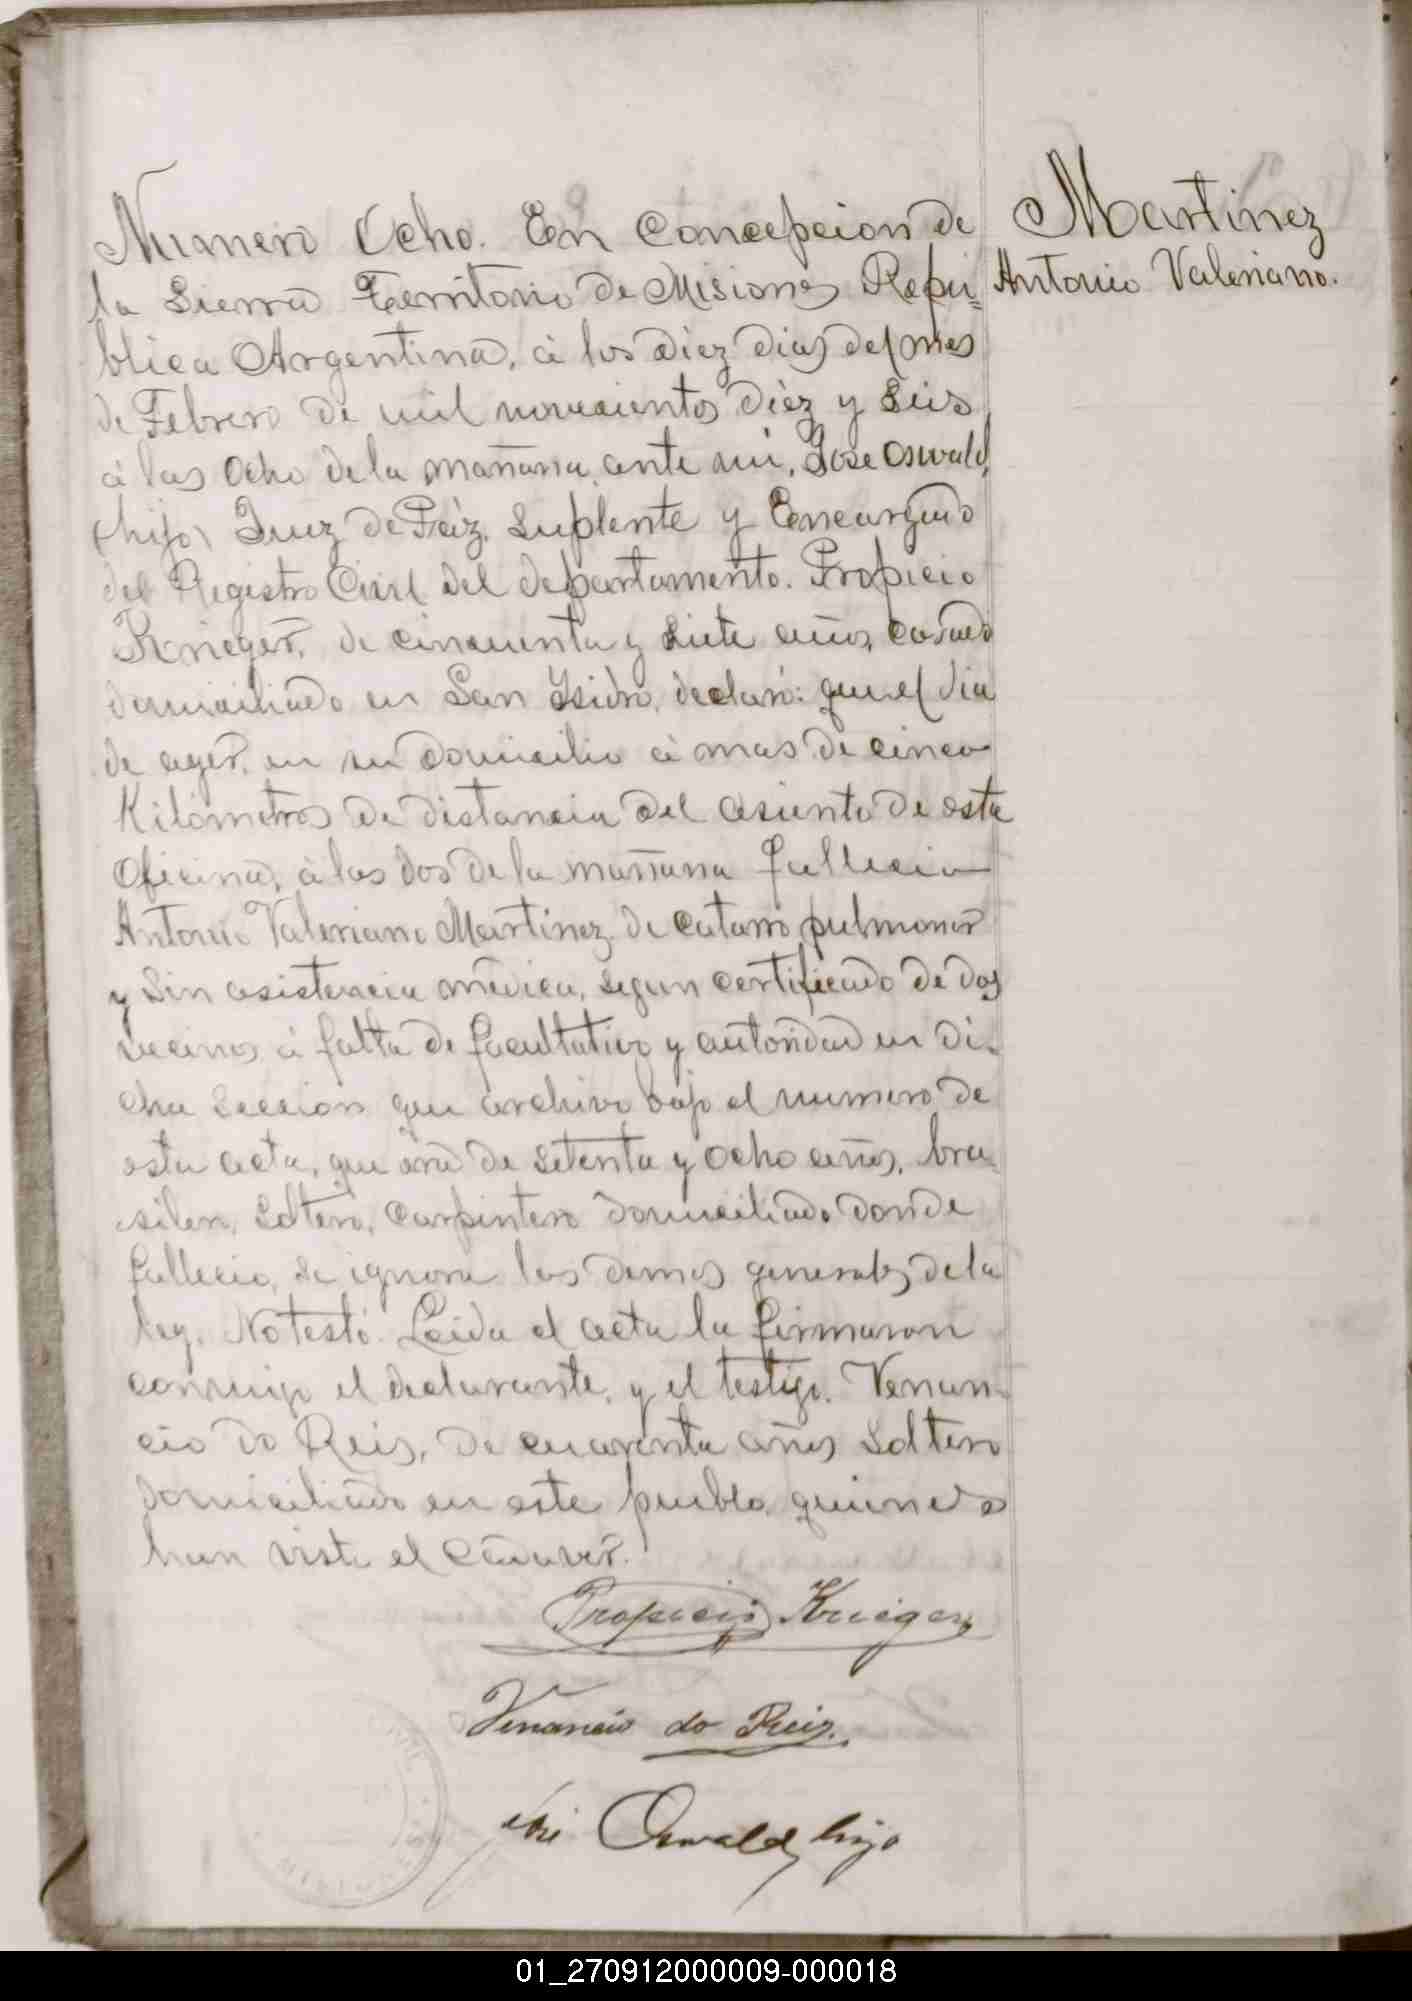 Numero Ocho. En Concepcion de
la Sierra Territorio de Misiones Repú-
blica Argentina, á los diez dias del mes
de Febrero de mil novecientos diez y seis
á las ocho de la mañana, ante mi, Jose Oswald,
(hijo) Juez de Paz Suplente y Encargado
del Registro Civil del departamento. Propicio
Krieger, de cincuenta y siete años, casado
domiciliado en San Isidro, declaró: que el dia
de ayer, en su domicilio á mas de cinco
Kilómetros de distancia del asiento de esta
Oficina, á las dos de la mañana falleció
Antonio Valeriano Martinez de catarro pulmonar
y sin asistencia médica, segun certificado de dos
vecinos á falta de facultativo y autoridad en di-
cha seccion que archivo bajo el numero de
esta acta, que era de setenta y ocho años, bra-
silero, soltero, carpintero domiciliado donde
falleció, se ignora las demas generales de la
ley. No testó. Leida el acta la firmaron
conmigo el declarante, y el testigo. Venan-
cio do Reis, de cuarenta años soltero
domiciliado en este pueblo quienes
han visto el cadaver.
Martinez
Antonio Valeriano.
Propicio Krieger
Venancio do Reis.
José Oswald hijo
01_270912000009-000018